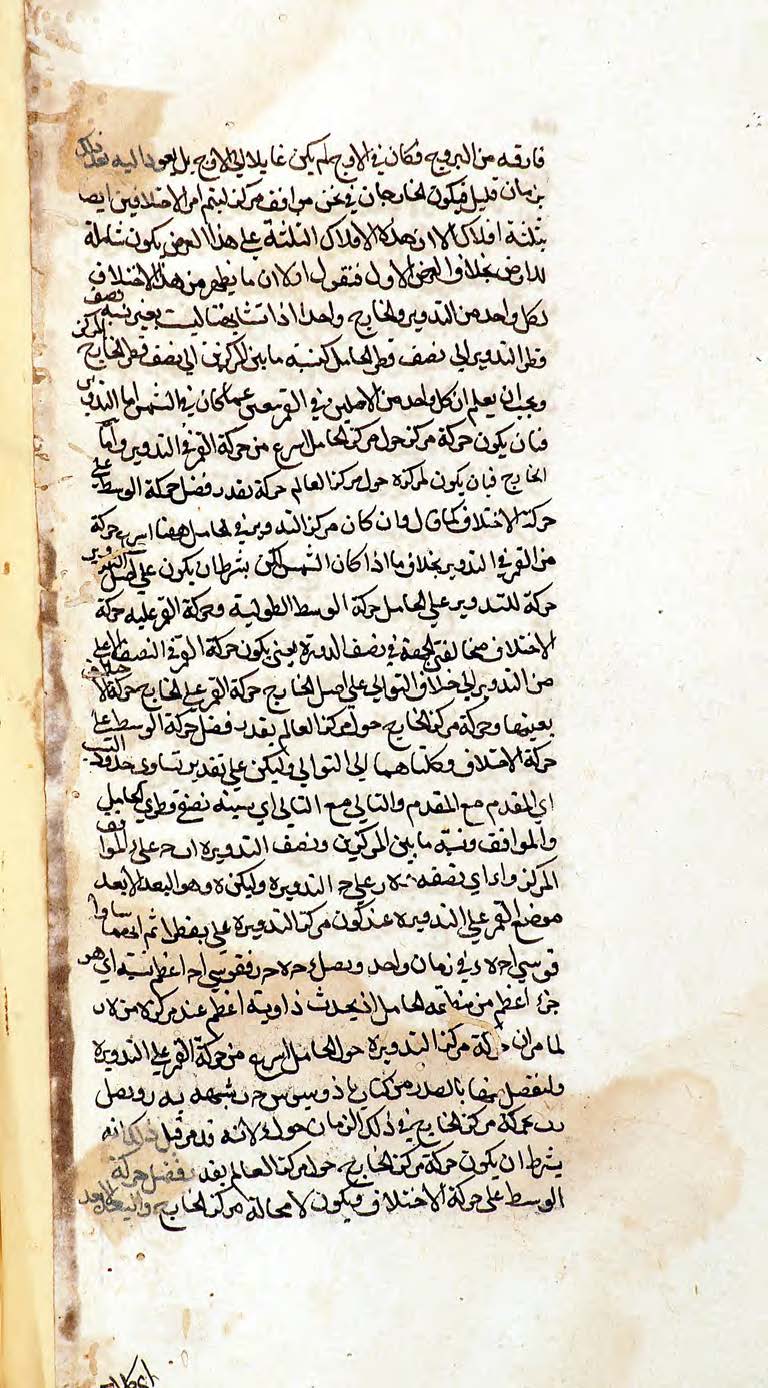 فارقه من البروج وكان في الاوج لم يكن غايلا الي الاوج بل يعود اليه بعد ذلك
بزمان قليل فيكون الخارجان في ثخن موافق مركز ليتم امر الاختلافين ايضا
بثلثة افلاك الا ان هذه الافلاك الثلثة علي هذا الفرض يكون شاملة
للارض بخلاف الفرض الاول فنقول اولا ان ما يظهر من هذا الاختلاف
لكل واحد من التدوير والخارج واحد اذا تشابهتا ليست بغير نسبة نصف
قطر التدوير الي نصف قطر الحامل كنسبة ما بين المركزين الي نصف قطر الخارج المركز
ويجب ان يعلم ان كل واحد من الاصلين في القمر عما كان في الشمس اما التدوير
فبان يكون حركة مركز حول مركز الحامل اسرع من حركة القمر في التدوير واما
الخارج فبان يكون لمركزه حول مركز العالم حركة بقدر فضل حركة الوسط علي
حركة الاختلاف كما قال وان كان مركز التدوير في الحامل ههنا اسرع حركة
من القمر في التدوير بخلاف ما اذا كان الشمس لكن بشرط ان يكون علي اصل التدوير
حركة للتدوير علي الحامل حركة الوسط الطولية وحركة القمر عليه حركة
الاختلاف مخالفتي الجهة في نصف الدورة يعني يكون حركة القمر في النصف الاعلي
من التدوير الي خلاف التوالي علي اصل الخارج حركة القمر علي الخارج حركة الاختلاف
بعينها وحركة مركز الخارج حول مركز العالم بقدر فضل حركة الوسط علي
حركة الاختلاف وكلتاهما الي التوالي وليكن علي تقدير تساوي حدود النسب
اي المقدم مع المقدم والتالي مع التالي اي نسبة نصفي قطري الحامل
والموافق ونسبة ما بين المركزين ونصف التدويره علي الموافق
المركز واي نصفه علي ج التدويره وليكن ه وهو البعد الابعد
موضع القمر علي التدويره عند كون مركز التدويره علي ثم ساوا
قوسي في زمان واحد ونصل فقوسي اعظم نسبة اي هو
جزء اعظم من منطقه الحامل اذ يحدث زاوية اعظم عند مركزه من
لما مر ان حركة مركز التدويره حول الحامل اسرع من حركة القمر علي التدويره
ولنفصل شبيهه به ونصل
حركة مركز الخارج في ذلك الزمان حول لانه قد مر قبل ذلك انه
يشترط ان يكون حركة مركز الخارج حول مركز العالم بقدر فضل حركة
الوسط علي حركة الاختلاف ويكون لا محالة مركز الخارج والبعد الابعد